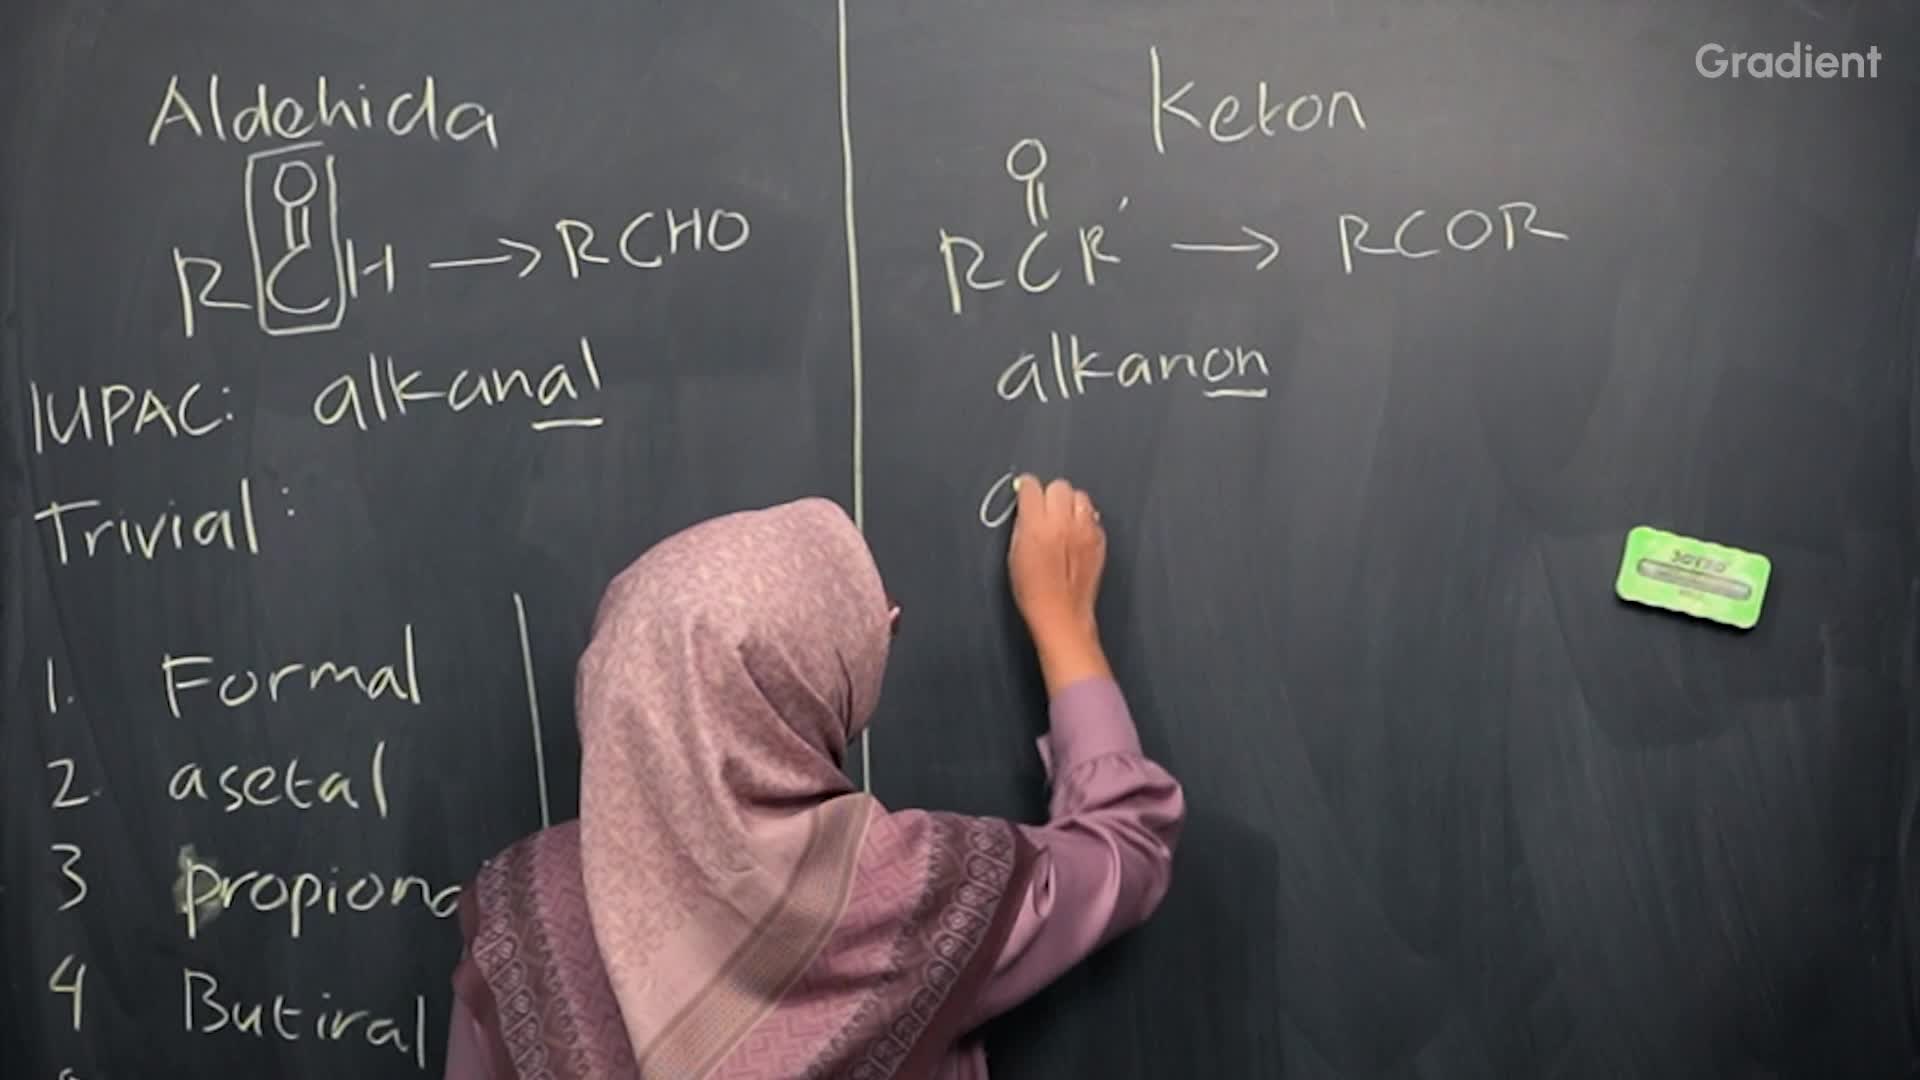 Gradient
Aldehida
O
RCH → RCHO
IUPAC: alkanal
Trivial:
1. Formal
2. asetal
3 propiona
4 Butiral
Keton
O
RCR' → RCOR
alkanon
a